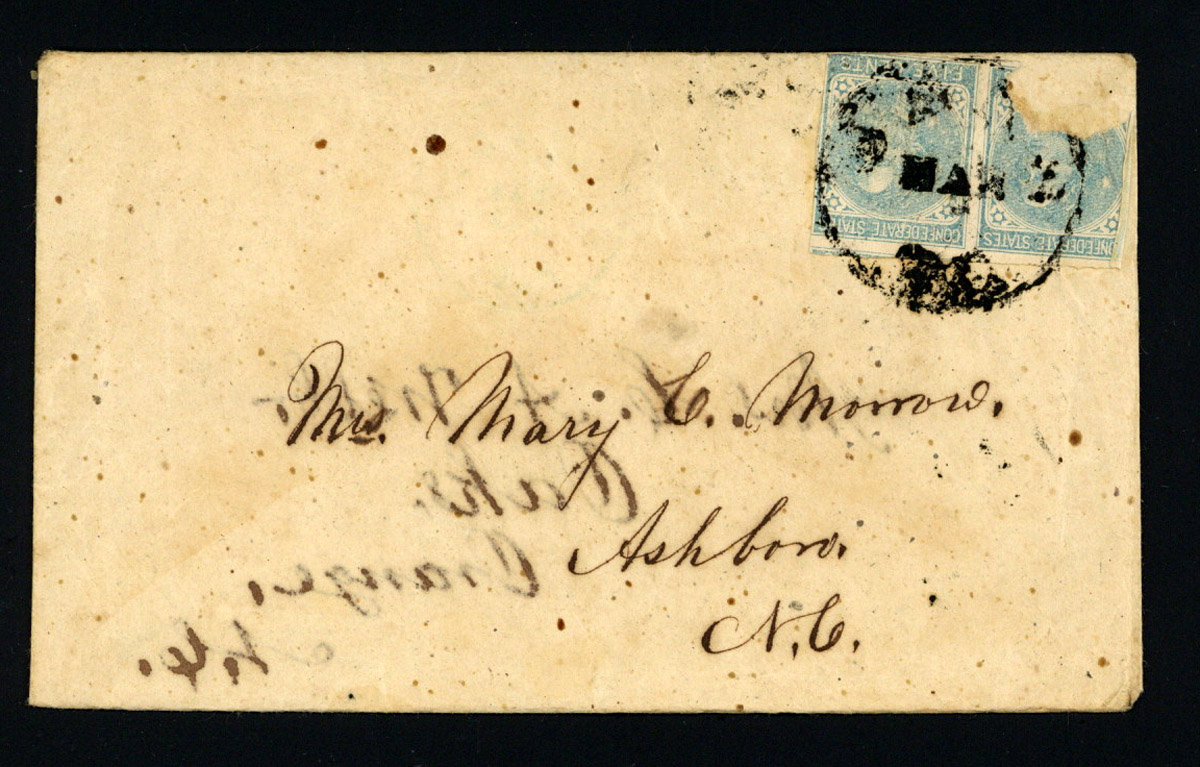 FIVE CENTS
CONFEDERATE STATES
CONFEDERATE STATES
MAR
Mrs. Mary C. Morrow.
Ashboro.
N.C.
Oaks.
Orange,
N.C.